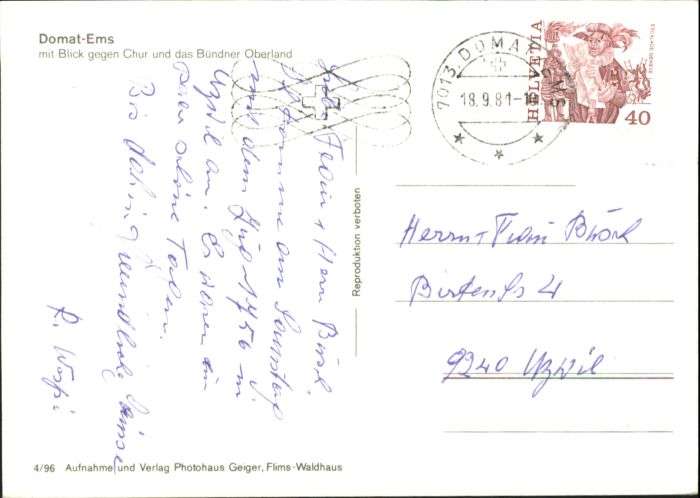 Domat-Ems
mit Blick gegen Chur und das Bündner Oberland
7013 DOMAT
18.9.81-1
HELVETIA
ESCALADE GENÈVE
40
Frau + Herr Bösch.
komme am Samstag
mit dem Zug 1756 in
Uzwil an. Es waren
schöne Tage.
Bis dahin freundliche Grüsse
R.
Reproduktion verboten
Herrn + Frau Bösch
4
9240 Uzwil
4/96 Aufnahme und Verlag Photohaus Geiger, Flims-Waldhaus